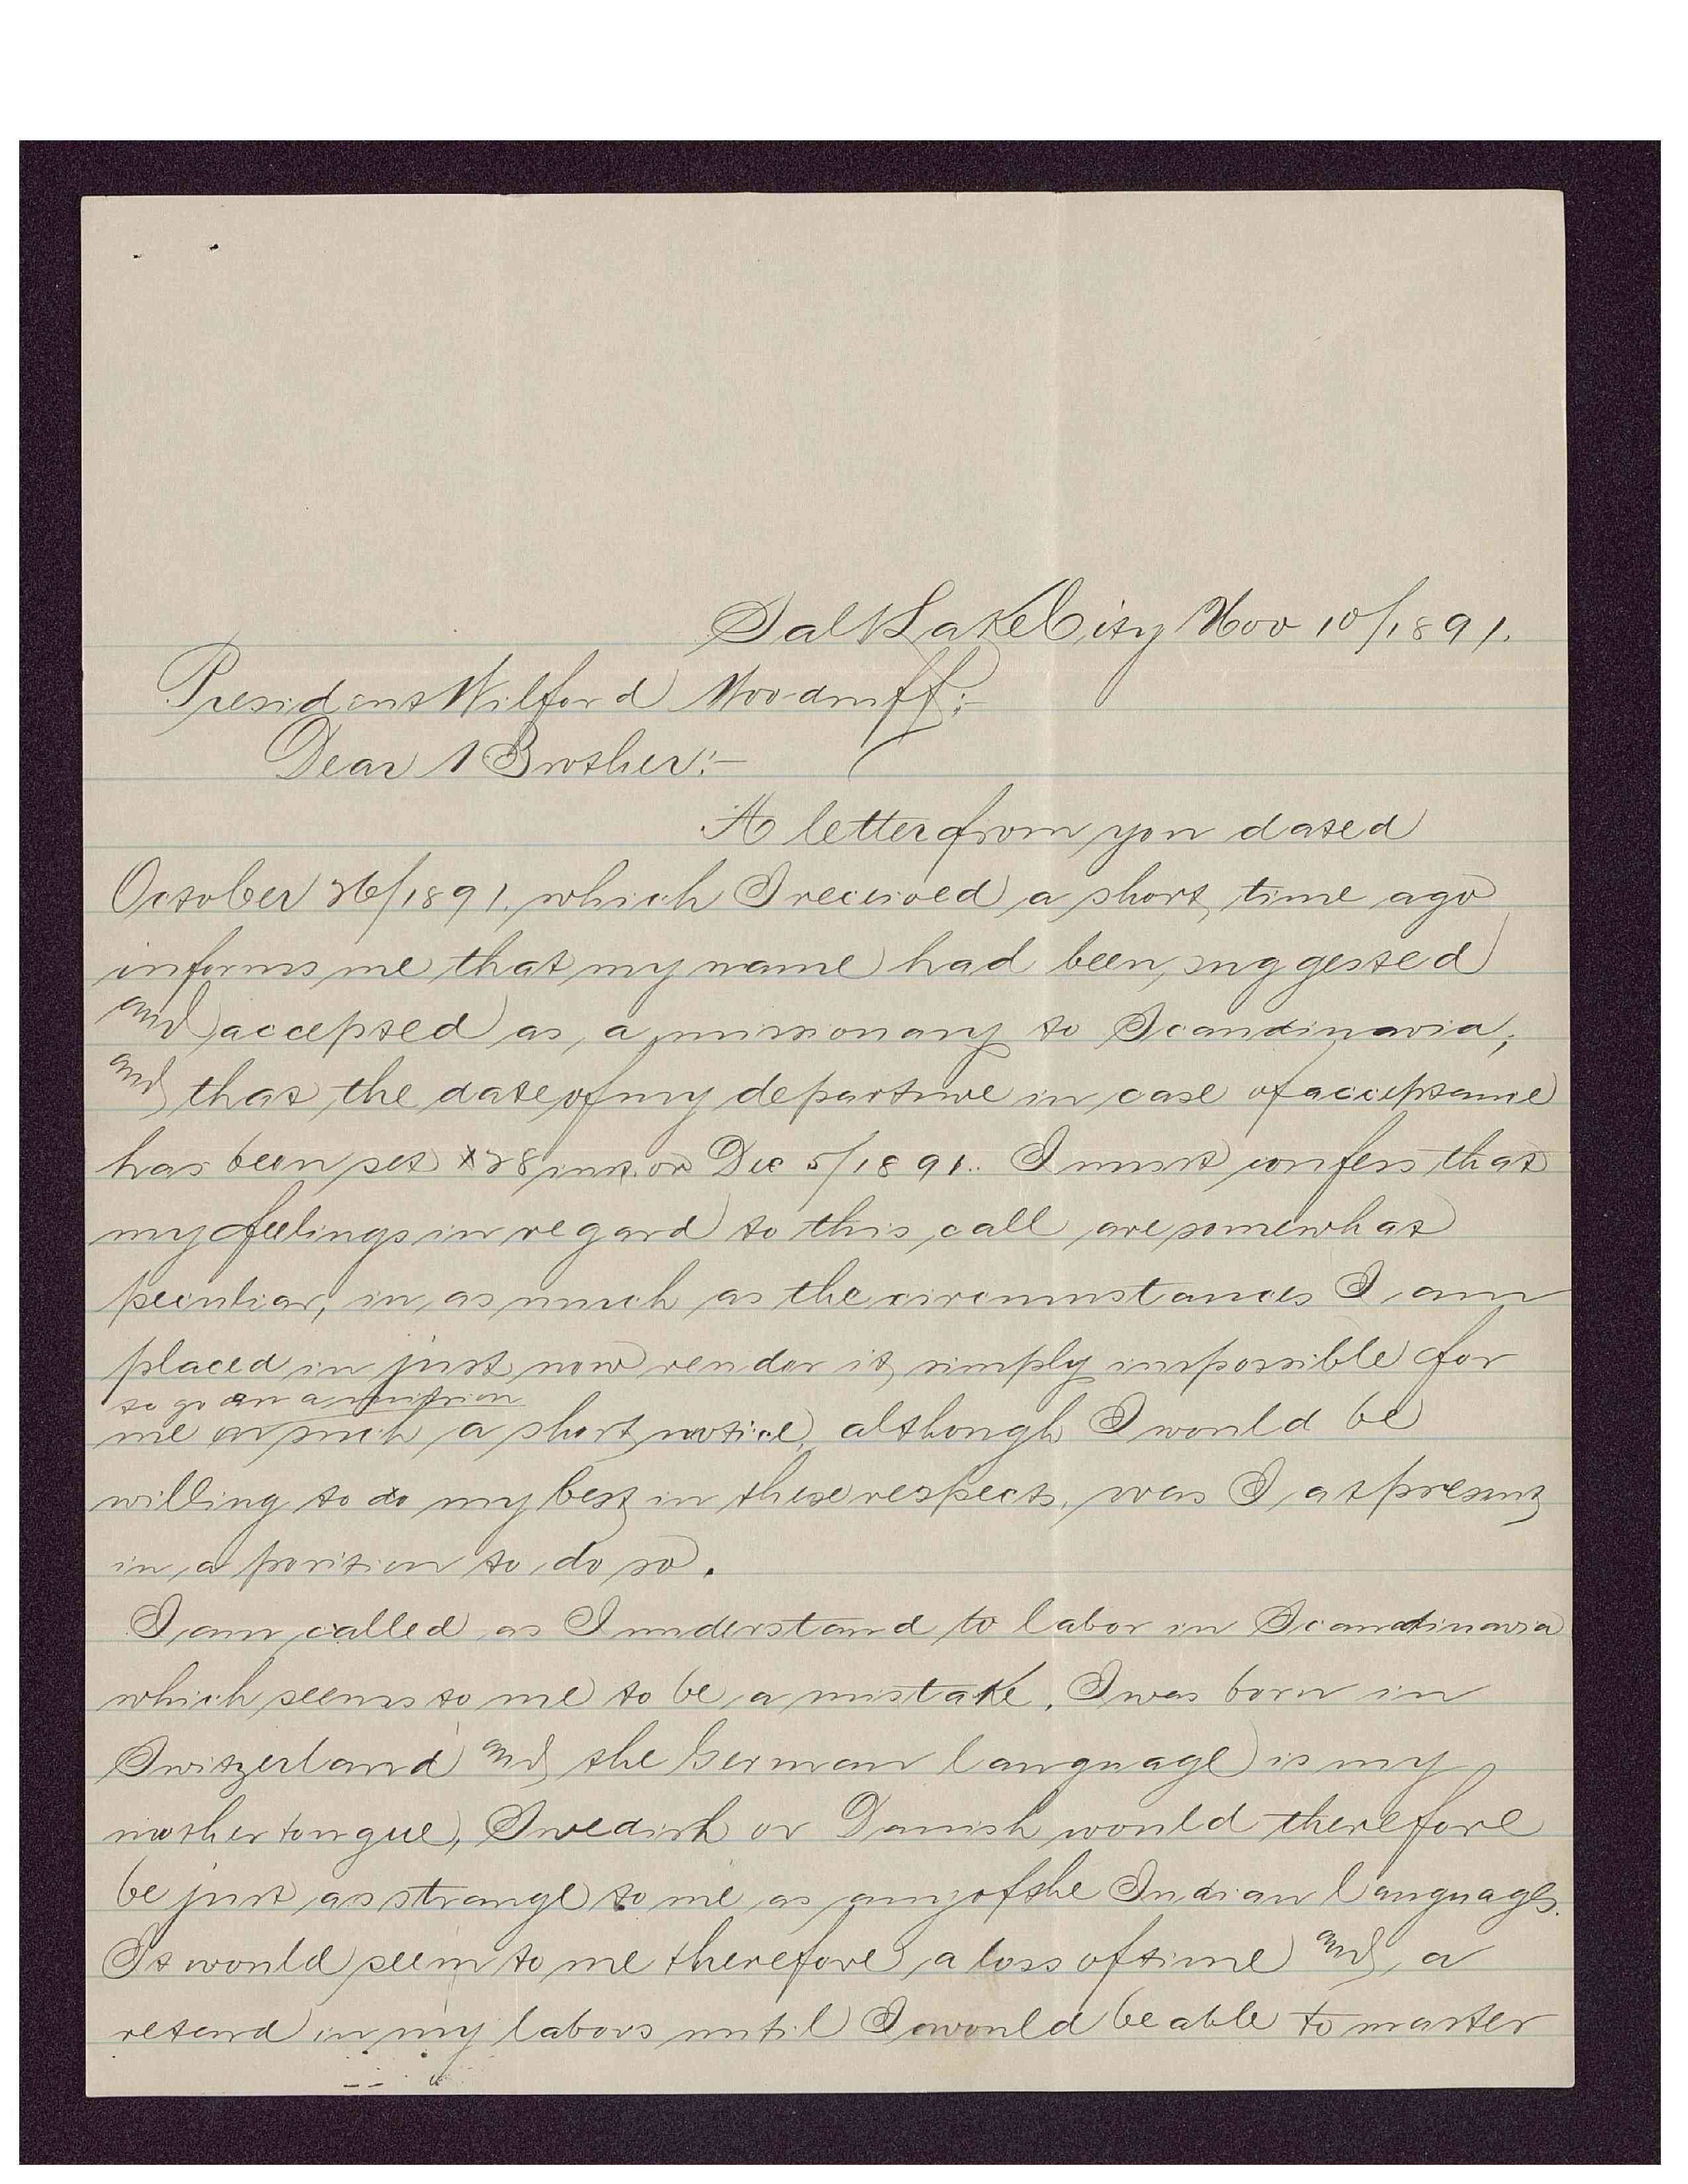 Salt Lake City Nov 10/1891.
President Wilford Woodruff:-
Dear Brother:-
A letter from you dated
October 26/1891. which I received a short time ago
informs me that my name had been suggested
and accepted as a missionary to Scandinavia,
and that the date of my departure in case of acceptance
has been set 28 inst. or Dec 5/1891. I must confess that
my feelings in regard to this call are somewhat
peculiar, in as much as the circumstances I am
placed in just now render it simply impossible for
to go on a mission
me on such a short notice, although I would be
willing to do my best in these respects, was I at present
in a position to do so.
I am called as I understand to labor in Scandinavia
which seems to me to be a mistake. I was born in
Switzerland and the German language is my
mother tongue, Swedish or Danish would therefore
be just as strange to me as any of the Indian languages.
It would seem to me therefore a loss of time and a
retard in my labors until I would be able to master